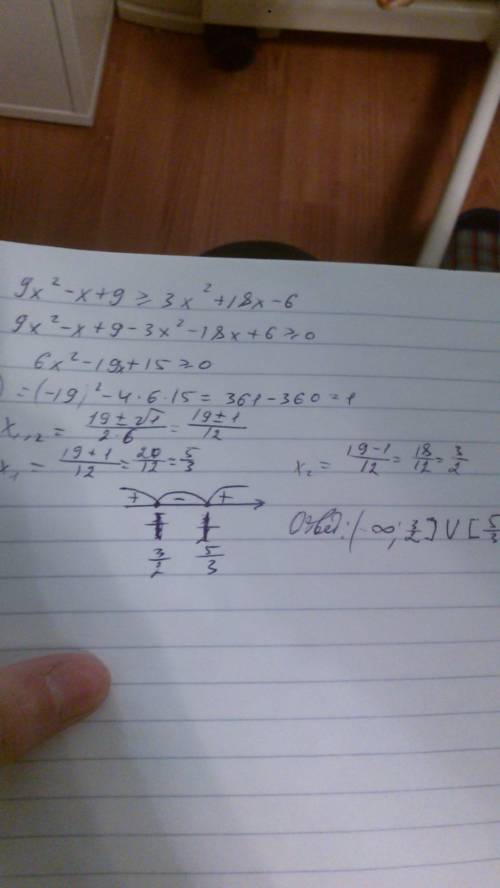 9x² - x + 9 ≥ 3x² + 18x - 6
9x² - x + 9 - 3x² - 18x + 6 ≥ 0
6x² - 19x + 15 ≥ 0
) = (-19)² - 4·6·15 = 361 - 360 = 1
x₁,₂ = (19 ± √1)/(2·6) = (19 ± 1)/12
x₁ = (19 + 1)/12 = 20/12 = 5/3 x₂ = (19 - 1)/12 = 18/12 = 3/2
+ - +
3/2 5/3
Ответ: (-∞; 3/2] ∪ [5/3